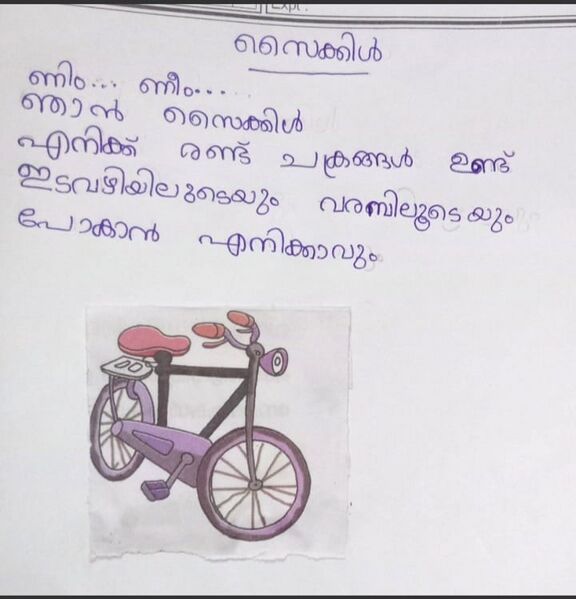 സൈക്കിൾ
ണിം... ണീം.....
ഞാൻ സൈക്കിൾ
എനിക്ക് രണ്ട് ചക്രങ്ങൾ ഉണ്ട്
ഇടവഴിയിലുടെയും വരമ്പിലൂടെയും
പോകാൻ എനിക്കാവും